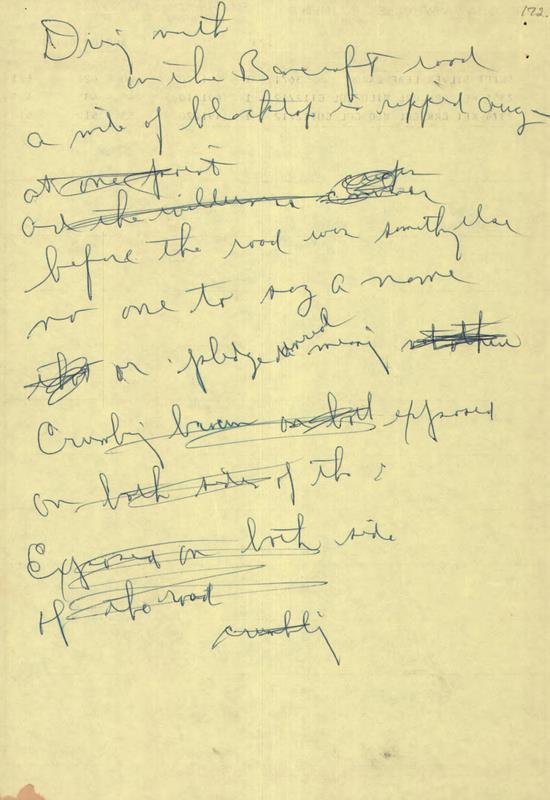 172.
with
on the Bancroft road
a mile of blacktop is ripped away
at one point
and the wilderness
before the road was something else
no one to say a name
or pledge meaning
Crumbly exposed
on both sides of the
Exposed on both side
of the road
crumbly